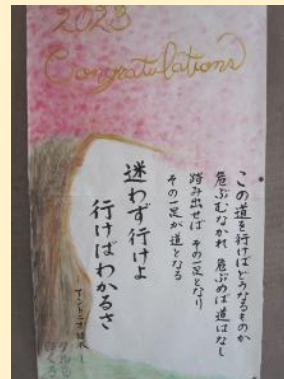 2023
Congratulations
この道を行けばどうなるものか
危ぶむなかれ 危ぶめば道はなし
踏み出せば その一足となり
その一足が道となる
迷わず行けよ
行けばわかるさ
アントニオ猪木